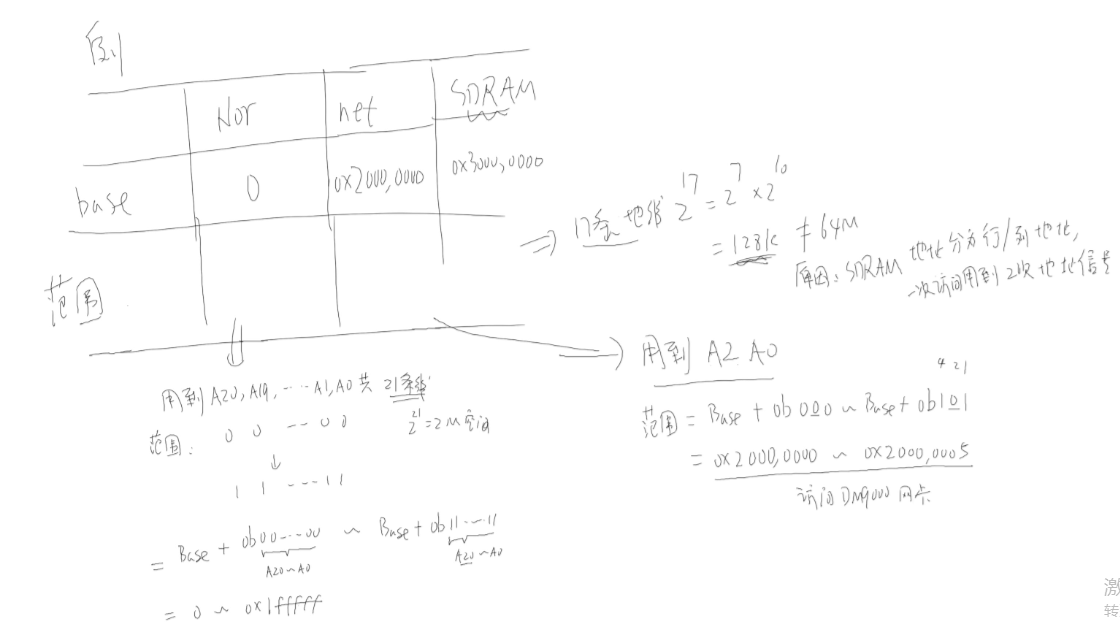 Nor net SDRAM
base 0 0x2000,0000 0x3000,0000
范围
=> 17条地线 2^17 = 2^7 x 2^10
= 128K ≠ 64M
原因: SDRAM 地址分为行/列地址,
一次访问用到2次地址信号
用到 A20, A19, ... A1, A0 共 21条线
2^21 = 2M空间
范围: 0 0 --- 0 0
↓
1 1 ---- 1 1
= Base + 0b00---00 ~ Base + 0b11---11
A20~A0 A20~A0
= 0 ~ 0x1fffff
用到 A2 A0
4 2 1
范围 = Base + 0b000 ~ Base + 0b101
= 0x2000,0000 ~ 0x2000,0005
访问DM9000网卡
激
转